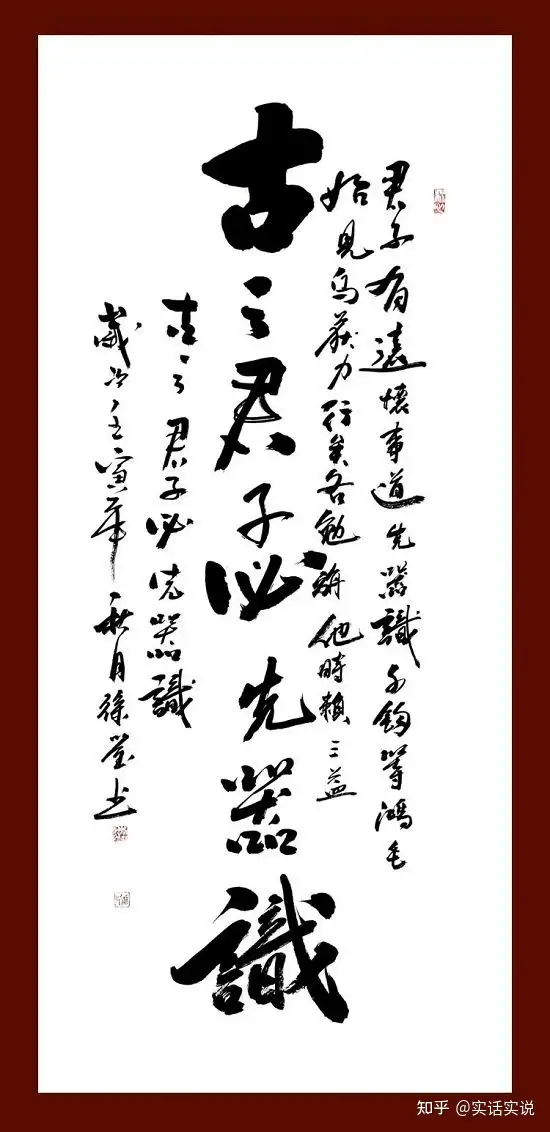 君子有遠懷事道先器識千鈞等鴻毛
始見烏获力行矣各勉旃他時賴三益
古之君子必先器識
古之君子必先器識
歲次壬寅年秋月徐莹书
知乎 @实话实说